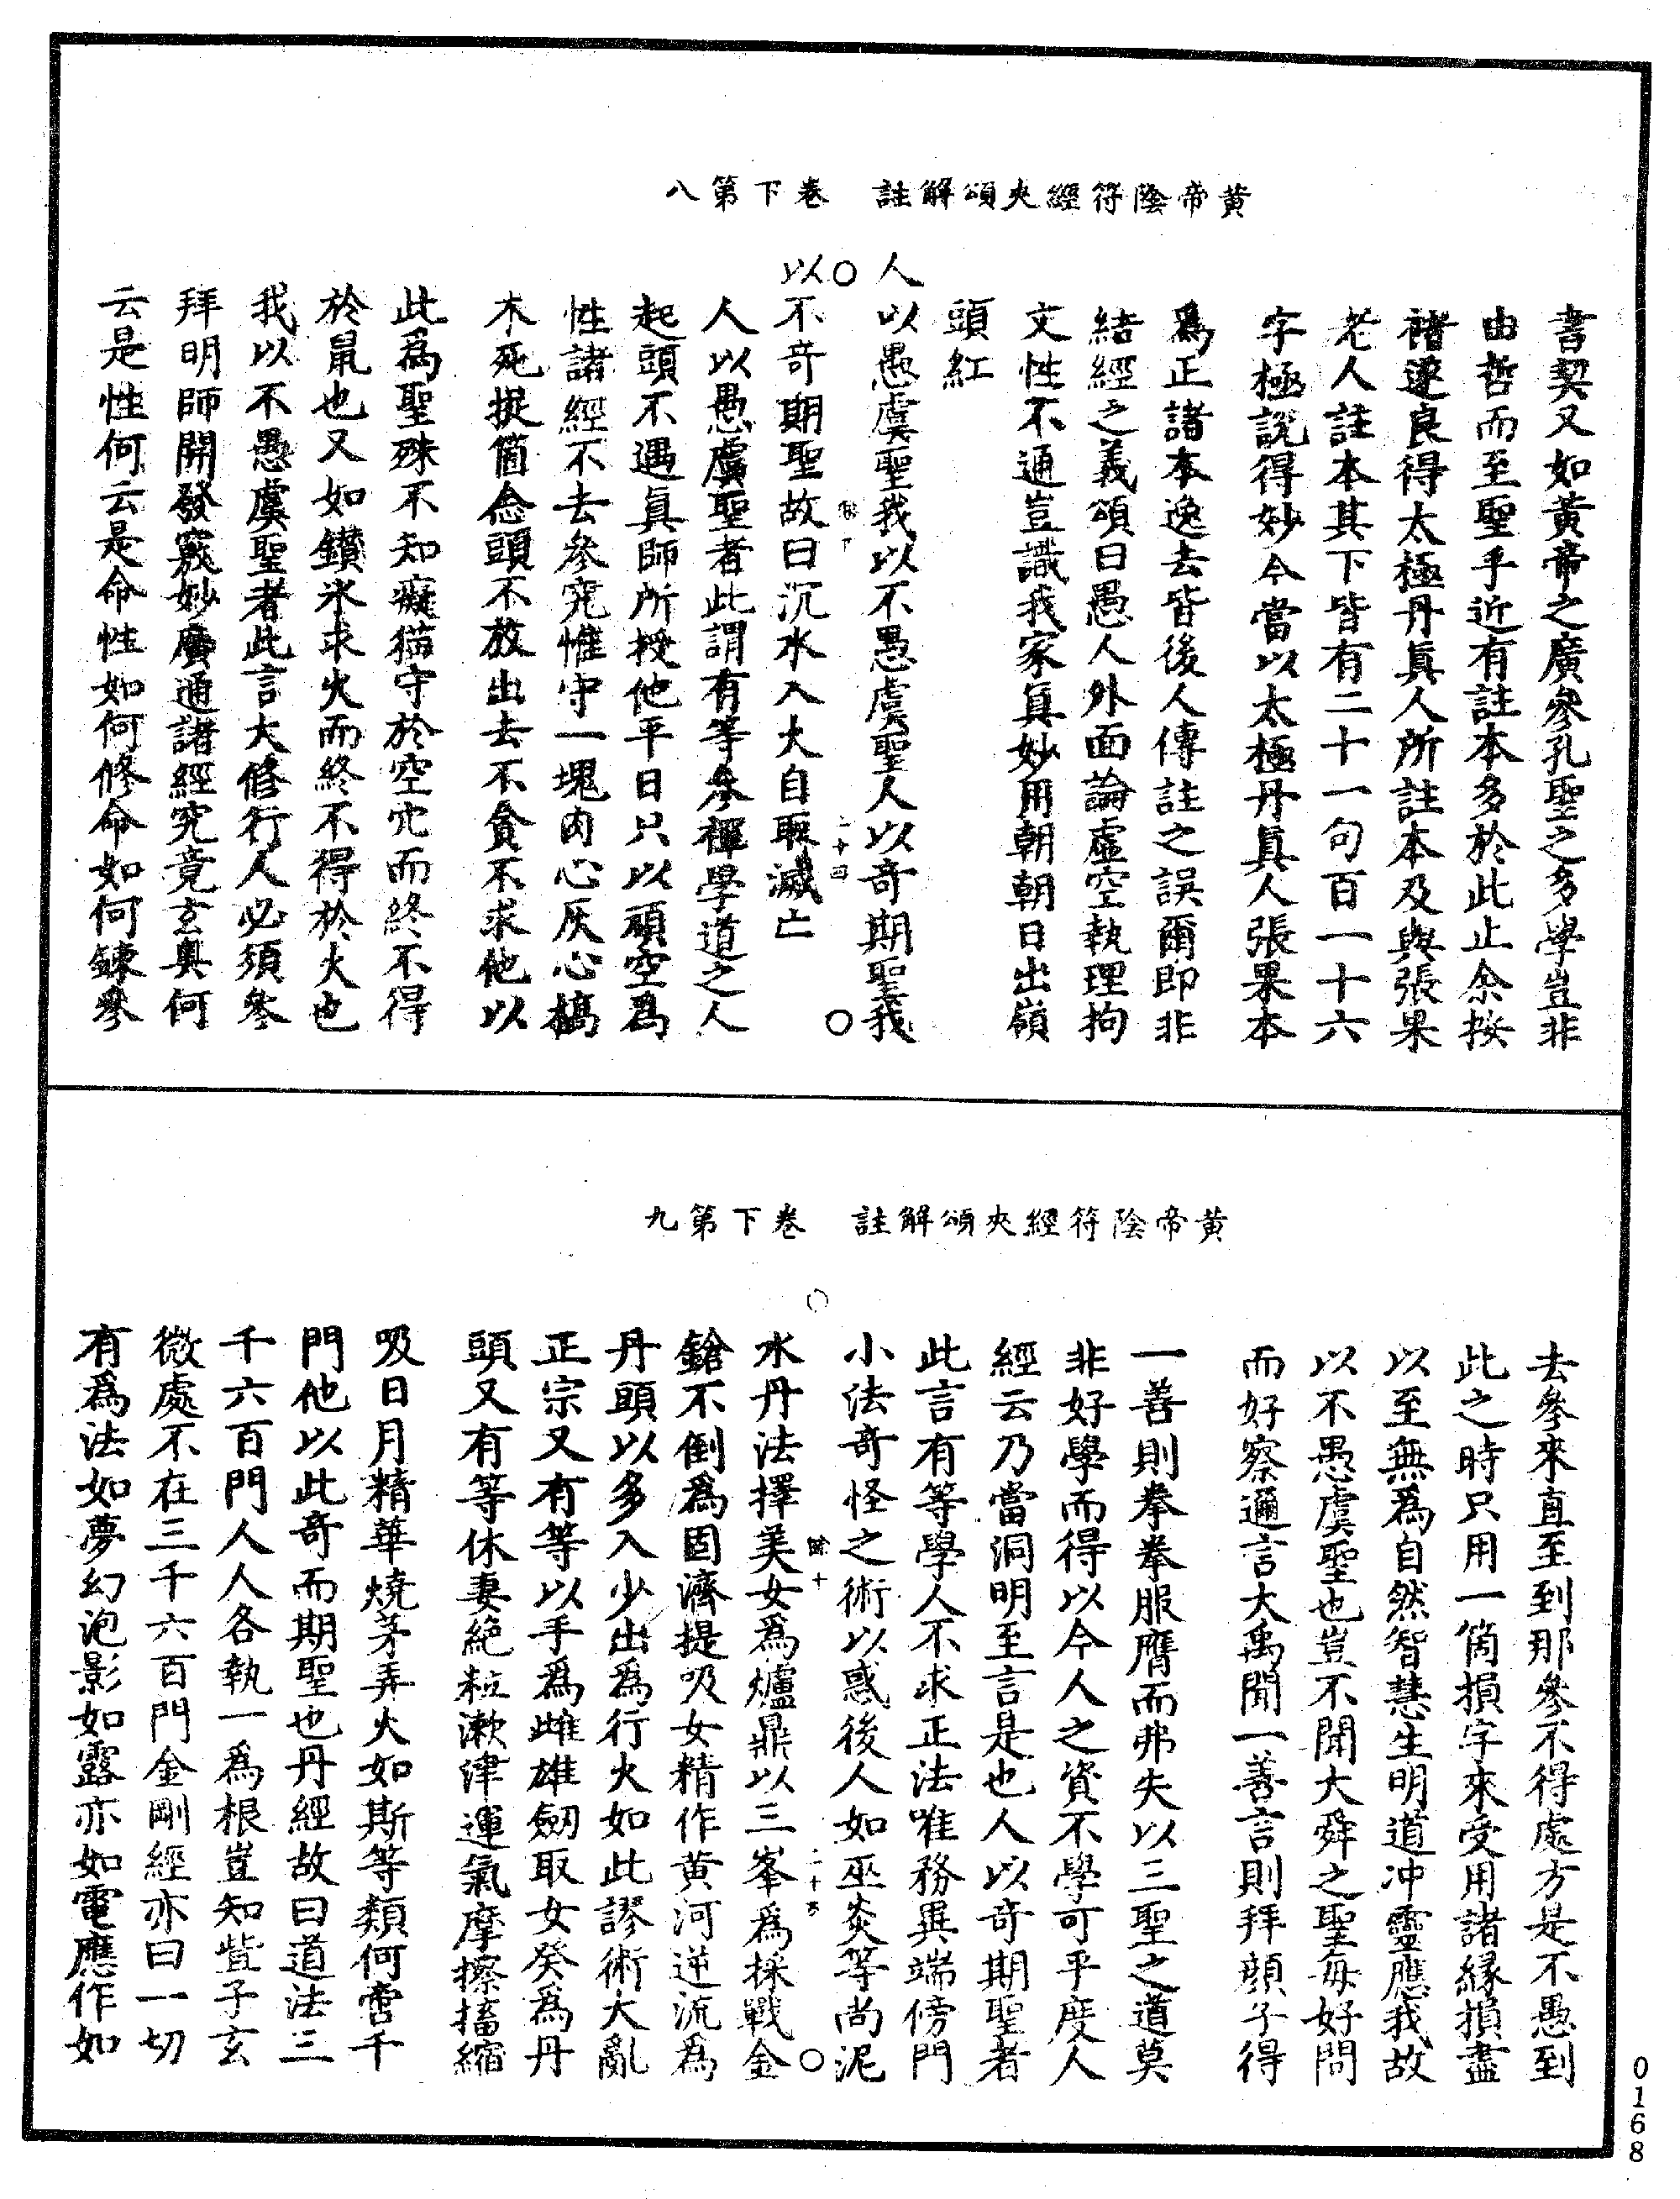 黃帝陰符經夾頌解註　卷下第八
書契又如黃帝之廣參孔聖之多學豈非
由哲而至聖乎近有註本多於此止余按
褚遂良得太極丹眞人所註本及與張果
老人註本其下皆有二十一句百一十六
字極說得妙今當以太極丹眞人張果本
爲正諸本逸去皆後人傳註之誤爾即非
結經之義頌曰愚人外面論虛空執理拘
文性不通豈識我家眞妙用朝朝日出嶺
頭紅
人以愚虞聖我以不愚虞聖人以奇期聖我
以不奇期聖故曰沉水入火自取滅亡
二十四
人以愚虞聖者此謂有等參禪學道之人
起頭不遇眞師所授他平日只以頑空爲
性諸經不去參究惟守一塊肉心灰心槁
木死捉箇念頭不放出去不貪不求他以
此爲聖殊不知癡猫守於空穴而終不得
於鼠也又如鑽氷求火而終不得於火也
我以不愚虞聖者此言大修行人必須參
拜明師開發竅妙廣通諸經究竟玄奥何
云是性何云是命性如何修命如何鍊參
黃帝陰符經夾頌解註　卷下第九
去參來直至到那參不得處方是不愚到
此之時只用一箇損字來受用諸緣損盡
以至無爲自然智慧生明道冲靈應我故
以不愚虞聖也豈不聞大舜之聖每好問
而好察邇言大禹聞一善言則拜顏子得
一善則拳拳服膺而弗失以三聖之道莫
非好學而得以今人之資不學可乎度人
經云乃當洞明至言是也人以奇期聖者
此言有等學人不求正法唯務異端傍門
小法奇怪之術以惑後人如巫炎等尚泥
水丹法擇美女爲爐鼎以三峯爲採戰金
鎗不倒爲固濟提吸女精作黃河逆流爲
丹頭以多入少出爲行火如此謬術大亂
正宗又有等以手爲雌雄劒取女癸爲丹
頭又有等休妻絶粒漱津運氣摩擦搐縮
吸日月精華燒茅弄火如斯等類何啻千
門他以此奇而期聖也丹經故曰道法三
千六百門人人各執一爲根豈知些子玄
微處不在三千六百門金剛經亦曰一切
有爲法如夢幻泡影如露亦如電應作如
0168